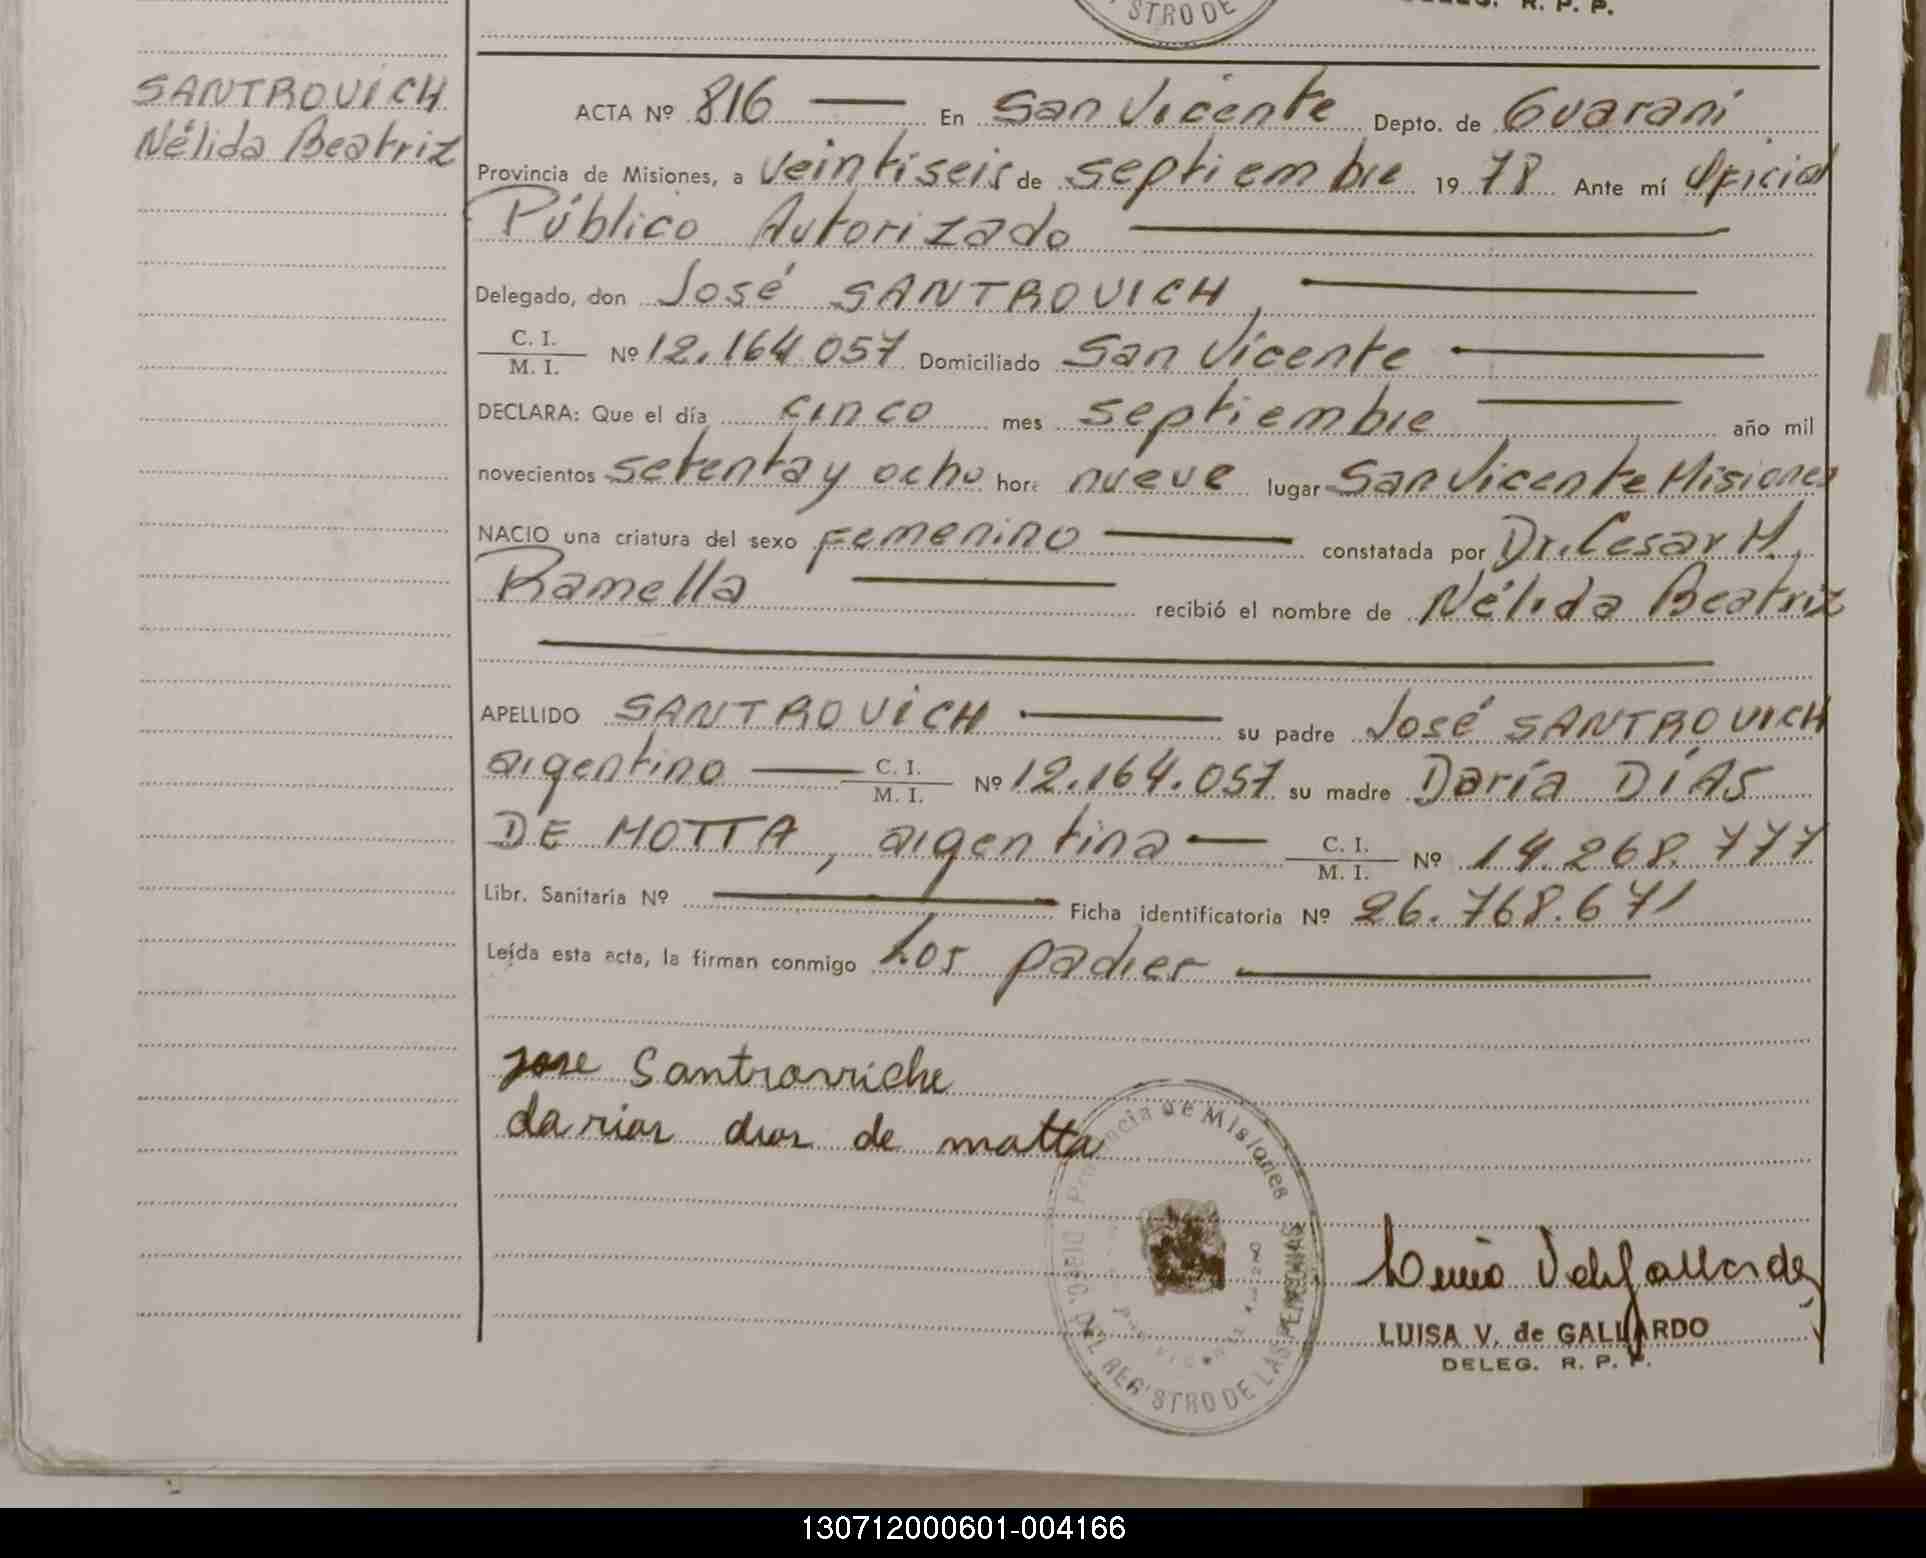 STRO DE
R. P. P.
SANTROVICH
Nélida Beatriz
ACTA Nº 816 En San Vicente Depto. de Guaraní
Provincia de Misiones, a veintiseis de septiembre 19 78 Ante mí Oficial
Público Autorizado
Delegado, don José SANTROVICH,
C. I.
M. I. Nº 12.164.057 Domiciliado San Vicente
DECLARA: Que el día cinco mes septiembre año mil
novecientos setenta y ocho hora nueve lugar San Vicente Misiones
NACIO una criatura del sexo femenino constatada por Dr. Cesar H.
Ramella recibió el nombre de Nélida Beatriz
APELLIDO SANTROVICH su padre José SANTROVICH
argentino C. I.
M. I. Nº 12.164.057 su madre Daría DÍAS
DE MOTTA, argentina C. I.
M. I. Nº 14.268.777
Libr. Sanitaria Nº Ficha identificatoria Nº 26.768.671
Leída esta acta, la firman conmigo Los padres
jose Santrovriche
darias dias de motta
Provincia de Misiones
DEL REGISTRO DE LAS PERSONAS
LUISA V. de GALLARDO
DELEG. R. P. P.
130712000601-004166